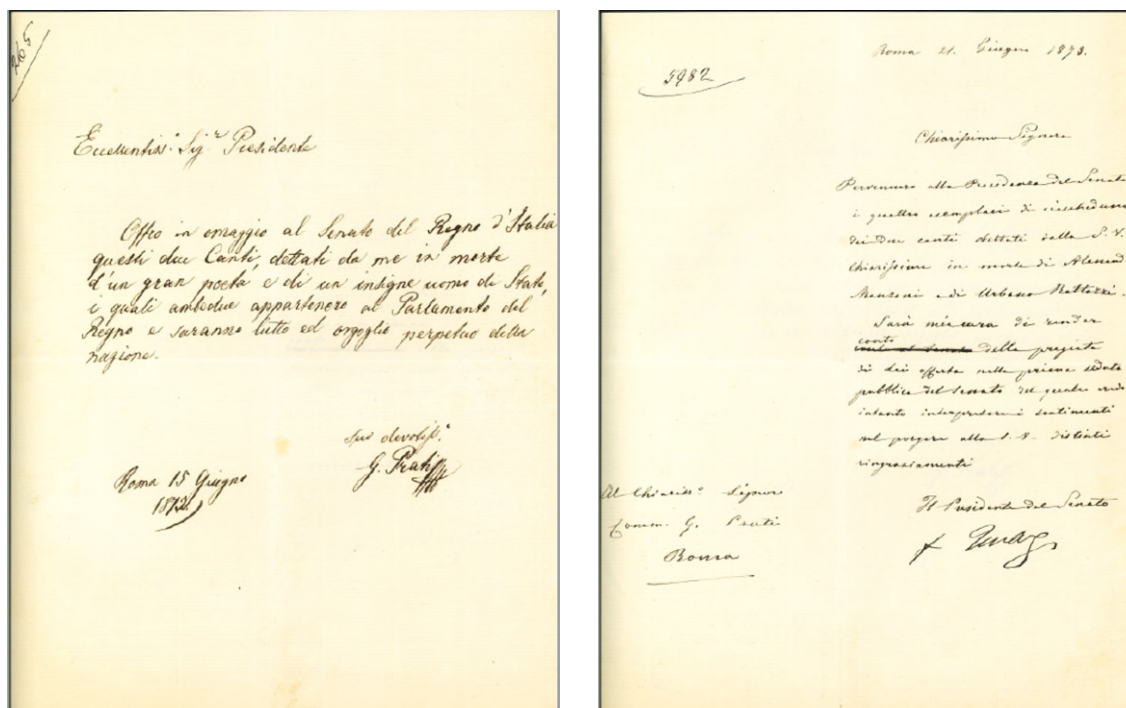 265
Eccellentiss.º Sig.r Presidente
Offro in omaggio al Senato del Regno d'Italia
questi due Canti, dettati da me in morte
d'un gran poeta e di un insigne uomo di Stato,
i quali ambedue appartenero al Parlamento del
Regno e saranno lutto ed orgoglio perpetuo della
nazione.
suo devotiss.º
G. Prati
Roma 15 Giugno
1873
Roma 21. Giugno 1873.
5982
Chiarissimo Signore
Pervennero alla Presidenza del Senato
i quattro esemplari di
dei due canti dettati dalla S. V.
Chiarissima in morte di Alessand
Manzoni e di Urbano Rattazzi.
Sarà mia cura di render
conto
della pregiata
di Lei offerta nella prima seduta
pubblica del Senato del quale
intanto i sentimenti
nel porgere alla S. V. distinti
ringraziamenti
Il Presidente del Senato
Al Chiariss.º Signore
Comm. G. Prati
Roma